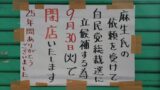 麻生氏の
依頼を受けて
自民党総裁選に
立候補する為
9月30日(火)で
閉店いたします
25年間ありがとう
ございました